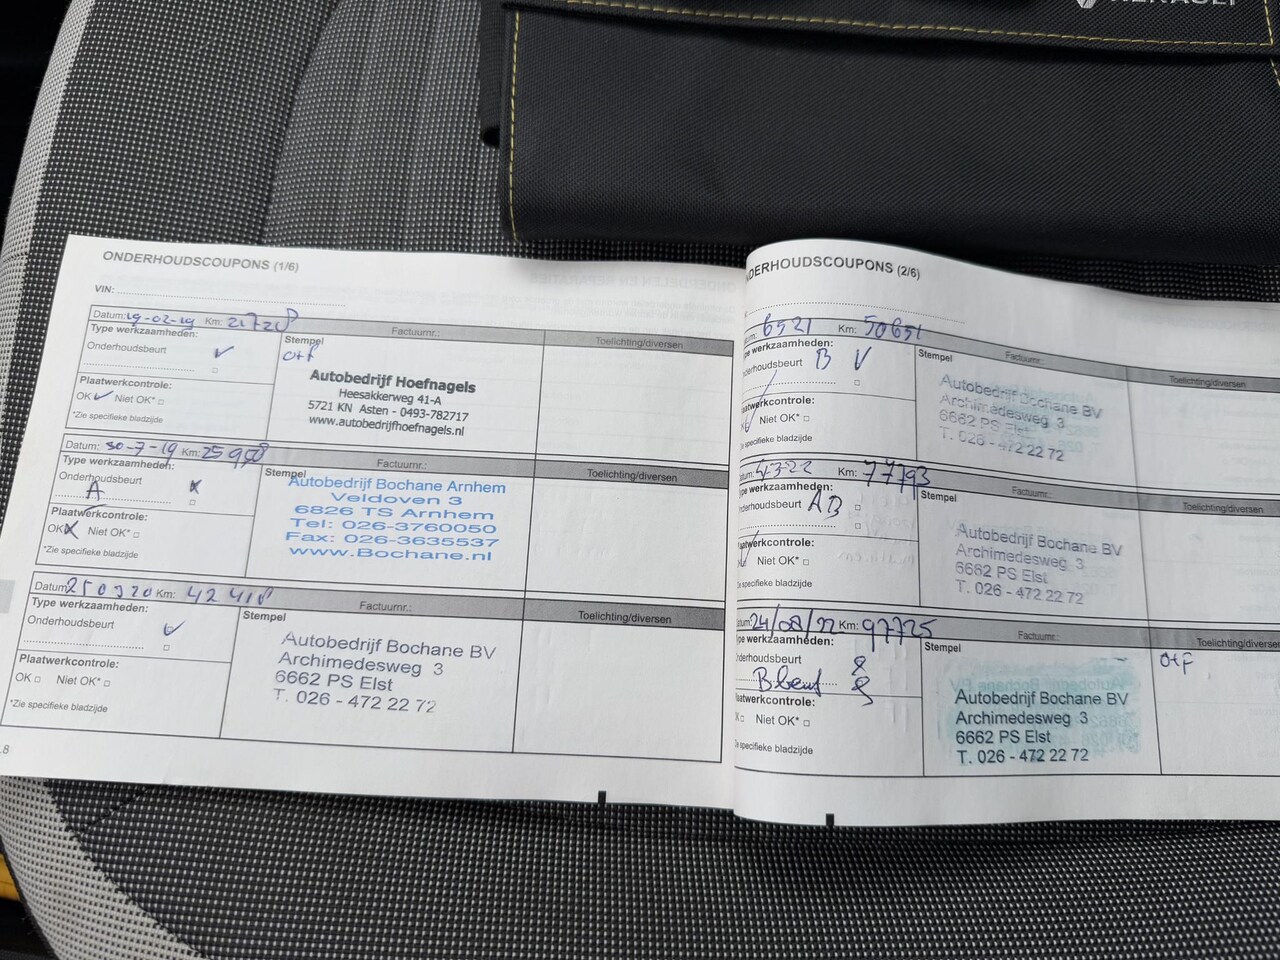 RENAULT
ONDERHOUDSCOUPONS (1/6)
VIN:
Datum: 19-02-19 Km: 21728 Factuurnr.:
Type werkzaamheden:
Onderhoudsbeurt
Plaatwerkcontrole:
OK Niet OK*
*Zie specifieke bladzijde
Stempel
O+F
Autobedrijf Hoefnagels
Heesakkerweg 41-A
5721 KN Asten - 0493-782717
www.autobedrijfhoefnagels.nl
Toelichting/diversen
Datum: 30-7-19 Km: Factuurnr.:
Type werkzaamheden:
Onderhoudsbeurt
A
Plaatwerkcontrole:
OK Niet OK*
*Zie specifieke bladzijde
Stempel
Autobedrijf Bochane Arnhem
Veldoven 3
6826 TS Arnhem
Tel: 026-3760050
Fax: 026-3635537
www.Bochane.nl
Toelichting/diversen
Datum: 250920 Km: 42418 Factuurnr.:
Type werkzaamheden:
Onderhoudsbeurt
Plaatwerkcontrole:
OK Niet OK*
*Zie specifieke bladzijde
Stempel
Autobedrijf Bochane BV
Archimedesweg 3
6662 PS Elst
T. 026 - 472 22 72
Toelichting/diversen
.8
DERHOUDSCOUPONS (2/6)
um: 6521 Km: 50651 Factuurnr.:
pe werkzaamheden:
derhoudsbeurt B
aatwerkcontrole:
Niet OK*
e specifieke bladzijde
Stempel
Autobedrijf Bochane BV
Archimedesweg 3
6662 PS Elst
T. 026 - 472 22 72
Toelichting/diversen
um: 4-3-22 Km: 77793 Factuurnr.:
pe werkzaamheden:
derhoudsbeurt AB
aatwerkcontrole:
Niet OK*
Zie specifieke bladzijde
Stempel
Autobedrijf Bochane BV
Archimedesweg 3
6662 PS Elst
T. 026 - 472 22 72
Toelichting/diversen
tum: 24/08/22 Km: 97725 Factuurnr.:
pe werkzaamheden:
derhoudsbeurt
B beurt
laatwerkcontrole:
K Niet OK*
Zie specifieke bladzijde
Stempel
Autobedrijf Bochane BV
Archimedesweg 3
6662 PS Elst
T. 026 - 472 22 72
Toelichting/diversen
O+F